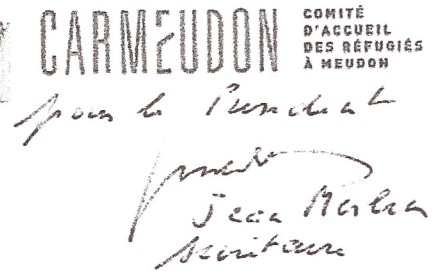 CARMEUDON
COMITÉ
D'ACCUEIL
DES RÉFUGIÉS
À MEUDON
pour le President
Jean
secrétaire